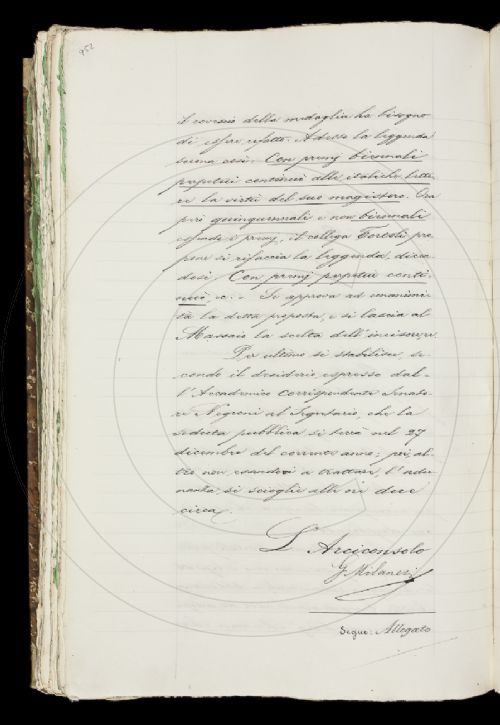 952
il rovescio della medaglia ha bisogno
di esser rifatto. Adesso la leggenda
suona così: Con premj biennali
perpetui continui alle italiche lette-
re la virtù del suo magistero. Ora
però quinquennali e non biennali
essendo i premj, il collega Foresti pro-
pone si rifaccia la leggenda, dicen-
dosi Con premj perpetui conti-
nui ec. Si approva ad unanimi-
tà la detta proposta, e si lascia al
Massaio la scelta dell'incisore.
Per ultimo si stabilisce, se-
condo il desiderio espresso dal-
l'Accademico corrispondente Senato-
re Negroni al Segretario, che la
seduta pubblica si terrà nel 27
dicembre del corrente anno; poi, al-
tro non essendovi a trattare, l'adu-
nanza si scioglie alle ore dieci
circa.
L'Arciconsolo
G Milanesi
Segue: Allegato